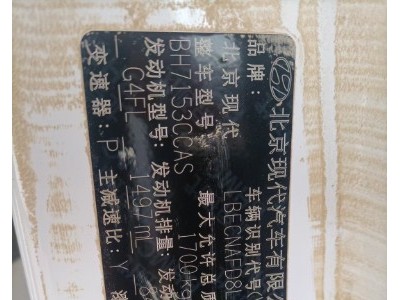 北京现代汽车有限公
品牌：北京现代 车辆识别代号
LBECNAFD8L
整车型号 BH7153CCAS 最大允许总质
1700kg
发动机型号：G4FL 发动机排量：1497m 发动
变速器：P 主减速比：Y